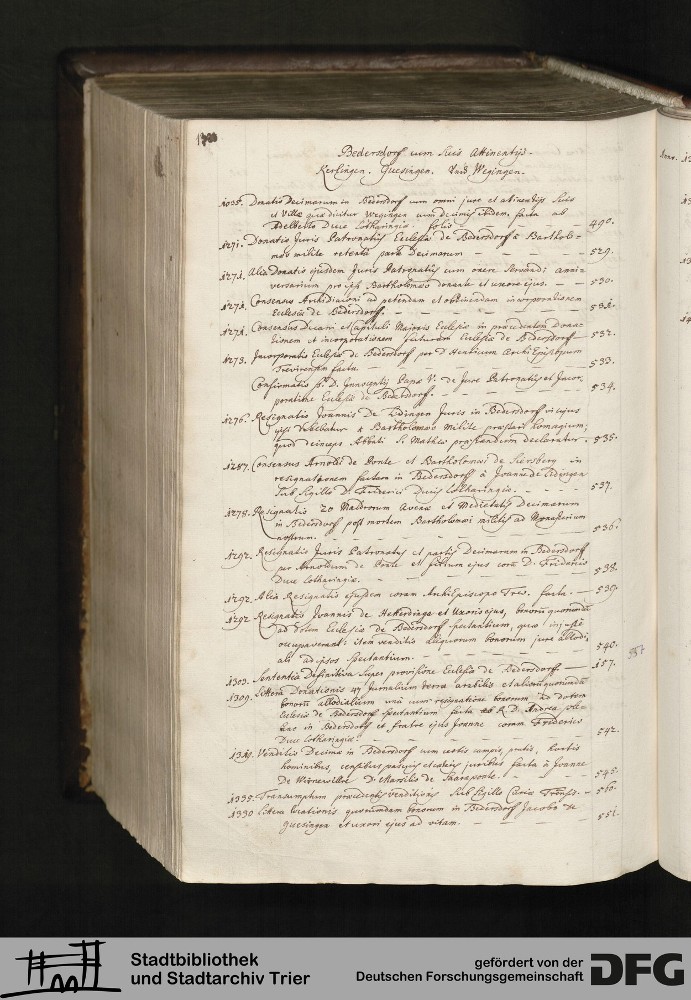 Bedersdorf cum suis Attinentijs.
Kerlingen. Guesingen. Und Wegingen.
1035. Donatio Decimarum in Bedersdorf cum omni jure et atinentijs suis
et Villæ quæ dicitur Wegingen cum decimis ibidem, facta ab
Adelberto Duce Lotharingiæ. folio — 490.
1271. Donatio Juris Patronatus Ecclesiæ de Bedersdorf à Bartholo-
mæo milite retenta parte Decimarum — 529.
1271. Alia Donatio ejusdem Juris Patronatus cum onere servandi anni-
versarium pro ipso Bartholomæo donante et uxore ejus. — 530.
Consensus Archidiaconi ad petendam et obtinendam incorporationem
Ecclesiæ de Bedersdorff.
Consensus Decani et Capituli Majoris Ecclesiæ in præcedentem Dona-
tionem et incorporationem futuram Ecclesiæ de Bedersdorff — 532.
1273. Incorporatio Ecclesiæ de Bedersdorff per D. Henricum Archi Episcopum
Trevirensem facta — 533.
Confirmatio D. Innocentij Papæ V. de Jure Patronatus et Incor-
poratione Ecclesiæ de Bedersdorf. — 534.
1276. Resignatio Joannis De Edingen Juris in Bedersdorf
à Bartholomæo Milite præstari homagium,
quod deinceps Abbati S. Mathiæ præstandum declaratur. 535.
1287. Consensus Arnoldi de Ponte et Bartholomæi de Siersberg in
resignationem factam in Bedersdorf à Joanne de Edingen
sub sigillo D. Friderici Ducis Lotharingiæ. — 537.
1278. Resignatio 20 Maldrorum Avenæ et Medietatis Decimarum
in Bedersdorf post mortem Bartholomæi militis ad Monasterium
nostrum. — 536.
1292. Resignatio Juris Patronatus et partis Decimarum in Bedersdorff
per Arnoldum de Ponte et filium ejus coram D. Friderico
Duce Lotharingiæ. — 538.
1292. Alia Resignatio ejusdem coram Archi Episcopo Trev. facta. — 539.
1292. Resignatio Joannis de Hetterdinga et Uxoris ejus, bonorum quorundam
ad dotem Ecclesiæ de Bedersdorf spectantium, quæ injuste
occupaverant: item venditio aliquorum bonorum jure allodi-
ali ad ipsos spectantium. — 540.
1303. Sententia Definitiva super provisione Ecclesiæ de Bedersdorff — 157.
1309. Littera Donationis Jurnalium terræ arabilis et aliorum quorundam
bonorum allodialium unà cum resignatione bonorum ad dotem
Ecclesiæ de Bedersdorf spectantium facta R. D. Andrea ple-
bano in Bedersdorf et fratre ejus Joanne coram Friderico
Duce Lotharingiæ. — 542.
Venditio Decimæ in Bedersdorf cum certis campis, pratis, hortis
hominibus, censibus pascuis et cæteris juribus facta à Joanne
De D. Marsilio de — 545.
1335. Transumptum præcedentis Venditionis sub sigillo Curiæ Trevirs. — 550.
1330 Littera locationis quorundam bonorum in Bedersdorf Jacobo de
Guesingen et uxori ejus ad vitam. — 551.
Anno.
Stadtbibliothek
und Stadtarchiv Trier
gefördert von der
Deutschen Forschungsgemeinschaft
DFG